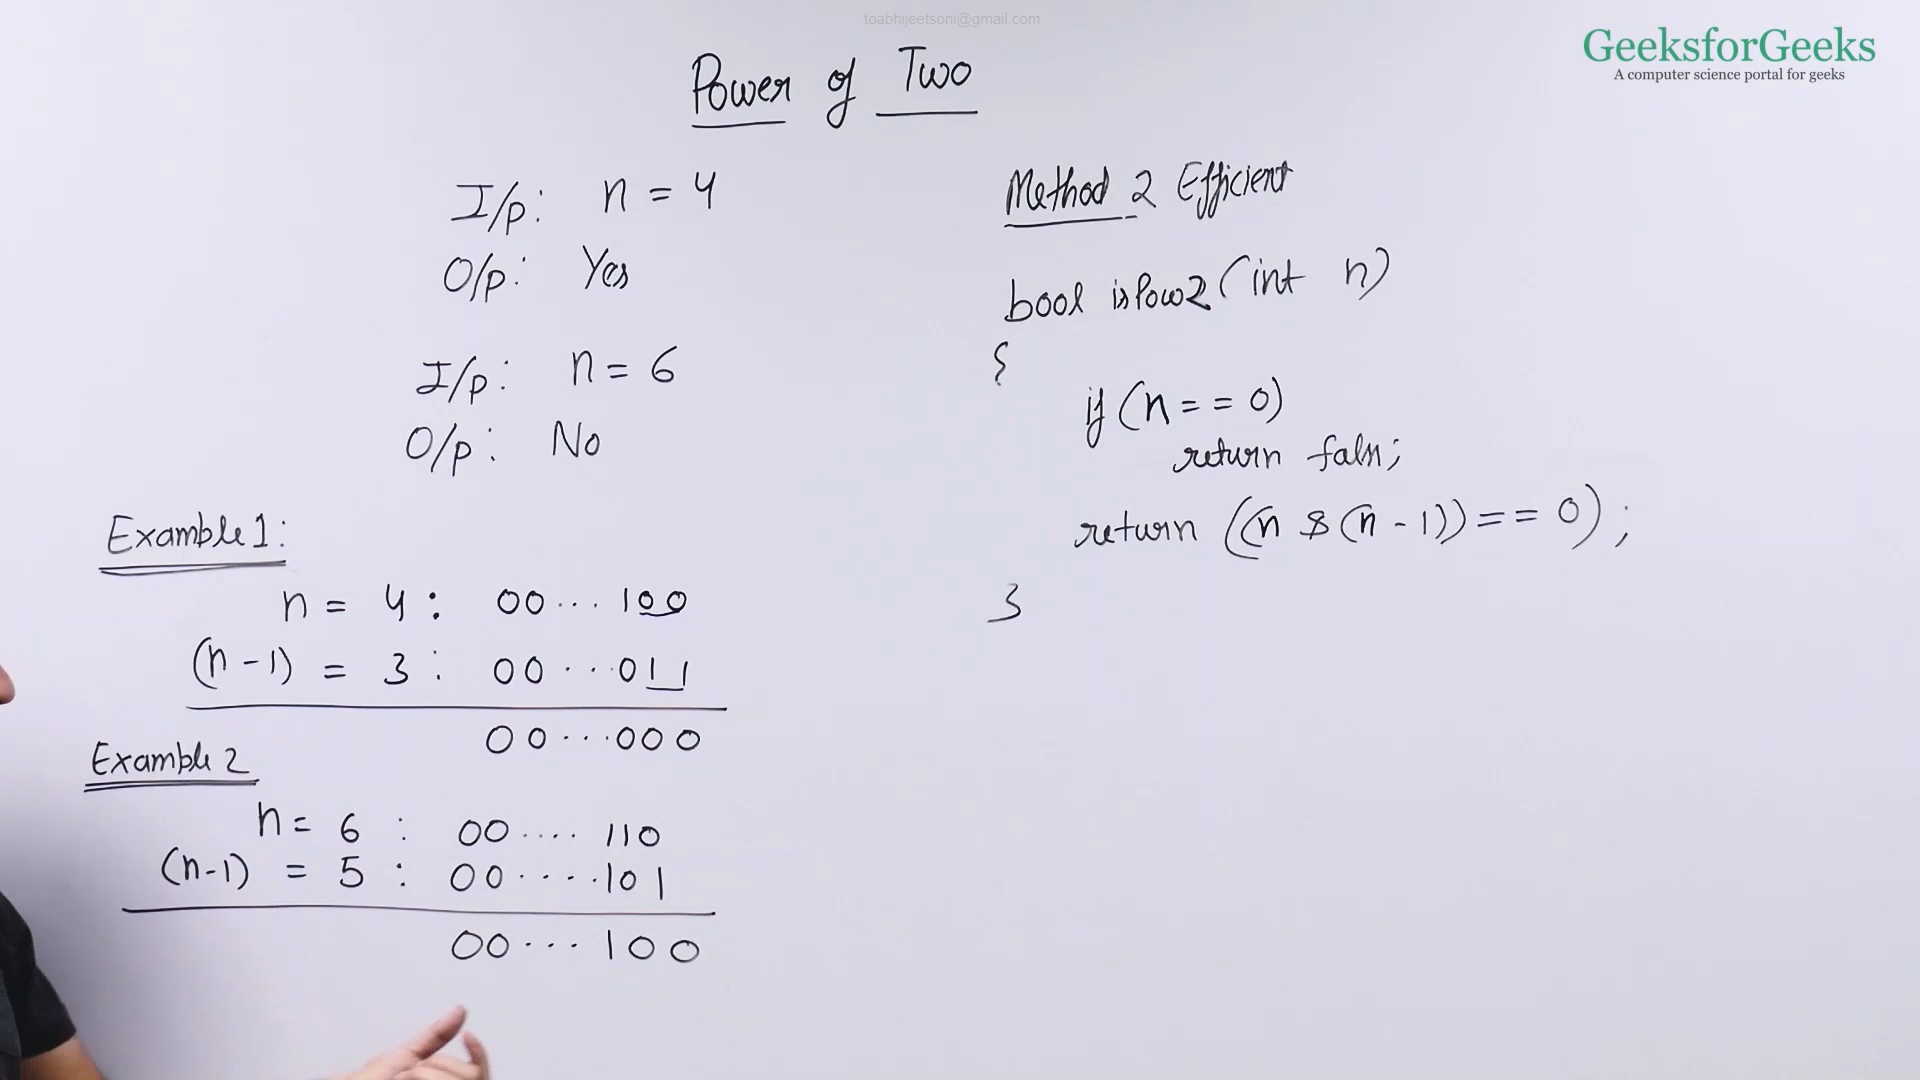 toabhijeetsoni@gmail.com
GeeksforGeeks
A computer science portal for geeks
Power of Two
I/p: n = 4
O/p: Yes
I/p: n = 6
O/p: No
Example 1:
n = 4 : 00...100
(n-1) = 3 : 00...011
00...000
Example 2
n = 6 : 00....110
(n-1) = 5 : 00....101
00...100
Method 2 Efficient
bool isPow2(int n)
{
if (n == 0)
return false;
return ((n & (n - 1)) == 0);
}